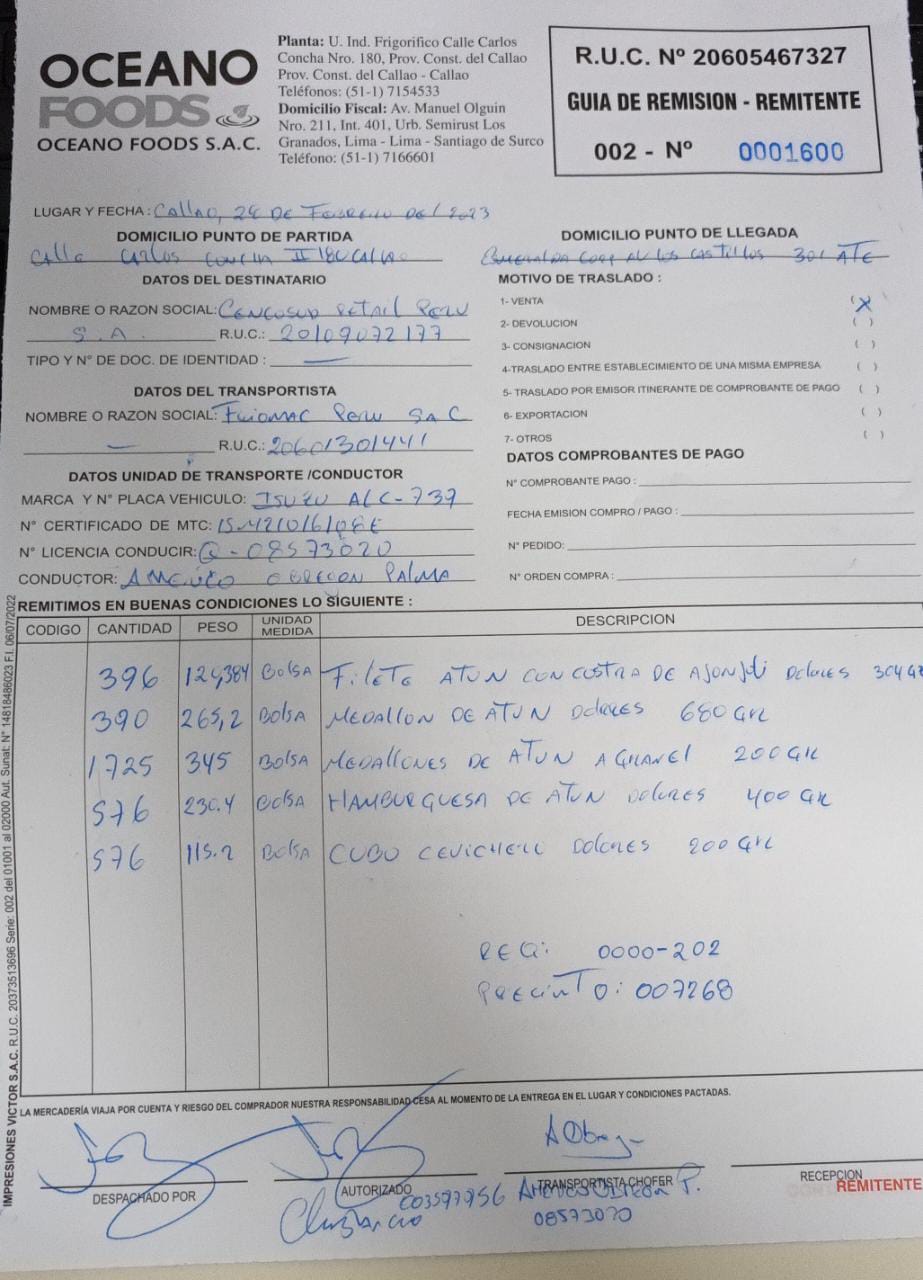 OCEANO
FOODS
OCEANO FOODS S.A.C.
Planta: U. Ind. Frigorifico Calle Carlos
Concha Nro. 180, Prov. Const. del Callao
Prov. Const. del Callao - Callao
Teléfonos: (51-1) 7154533
Domicilio Fiscal: Av. Manuel Olguin
Nro. 211, Int. 401, Urb. Semirust Los
Granados, Lima - Lima - Santiago de Surco
Teléfono: (51-1) 7166601
R.U.C. Nº 20605467327
GUIA DE REMISION - REMITENTE
002 - Nº 0001600
LUGAR Y FECHA: Callao, 28 DE Febrero del 2023
DOMICILIO PUNTO DE PARTIDA
Calle Carlos Concha 180 Callao
DOMICILIO PUNTO DE LLEGADA
Esmeralda Corp Av Los Castillos 301 ATE
DATOS DEL DESTINATARIO
NOMBRE O RAZON SOCIAL: Cencosud Retail Peru
S.A. R.U.C.: 20109072177
TIPO Y Nº DE DOC. DE IDENTIDAD : —
DATOS DEL TRANSPORTISTA
NOMBRE O RAZON SOCIAL: Peru SAC
— R.U.C.: 20601301441
DATOS UNIDAD DE TRANSPORTE /CONDUCTOR
MARCA Y Nº PLACA VEHICULO: ISUZU ALC-739
Nº CERTIFICADO DE MTC:
Nº LICENCIA CONDUCIR: Q-08573020
CONDUCTOR: Americo Obregon Palma
MOTIVO DE TRASLADO :
1- VENTA (X)
2- DEVOLUCION ( )
3- CONSIGNACION ( )
4-TRASLADO ENTRE ESTABLECIMIENTO DE UNA MISMA EMPRESA ( )
5- TRASLADO POR EMISOR ITINERANTE DE COMPROBANTE DE PAGO ( )
6- EXPORTACION ( )
7- OTROS ( )
DATOS COMPROBANTES DE PAGO
Nº COMPROBANTE PAGO :
FECHA EMISION COMPRO / PAGO :
Nº PEDIDO:
Nº ORDEN COMPRA :
REMITIMOS EN BUENAS CONDICIONES LO SIGUIENTE :
CODIGO CANTIDAD PESO UNIDAD MEDIDA DESCRIPCION
396 120,384 Bolsa Filete ATUN CON COSTRA DE AJONJOLI Dolores 304 GR
390 265,2 Bolsa MEDALLON DE ATUN Dolores 680 GR
1725 345 Bolsa MEDALLONES DE ATUN A GRANEL 200 GR
576 230.4 Bolsa HAMBURGUESA DE ATUN Dolores 400 GR
576 115.2 Bolsa CUBO CEVICHERO Dolores 200 GR
REQ: 0000-202
Precinto: 007268
LA MERCADERÍA VIAJA POR CUENTA Y RIESGO DEL COMPRADOR NUESTRA RESPONSABILIDAD CESA AL MOMENTO DE LA ENTREGA EN EL LUGAR Y CONDICIONES PACTADAS.
DESPACHADO POR
AUTORIZADO
TRANSPORTISTA-CHOFER
Americo Obregon P.
08573020
RECEPCION
REMITENTE
IMPRESIONES VICTOR S.A.C. R.U.C. 20373513696 Serie: 002 del 01001 al 02000 Aut. Sunat: Nº 14818486023 F.I. 06/07/2022